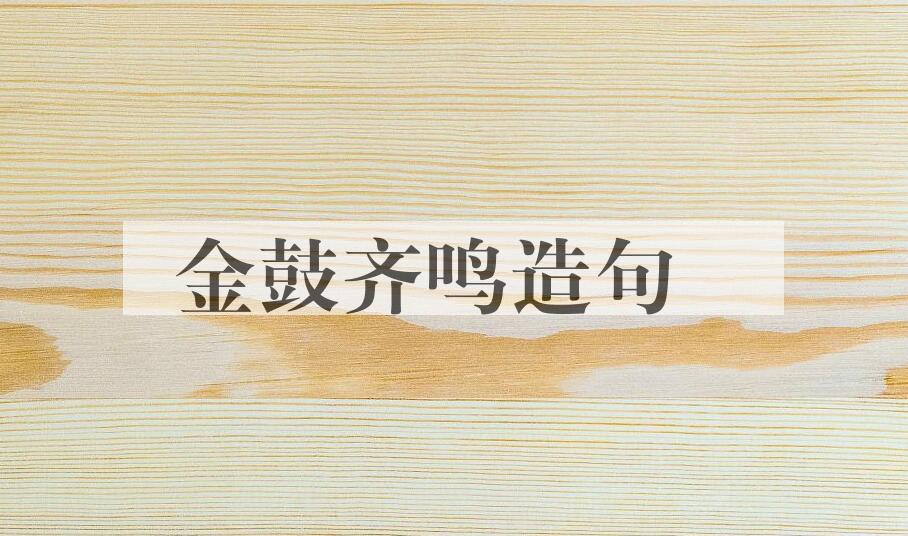 金鼓齐鸣造句